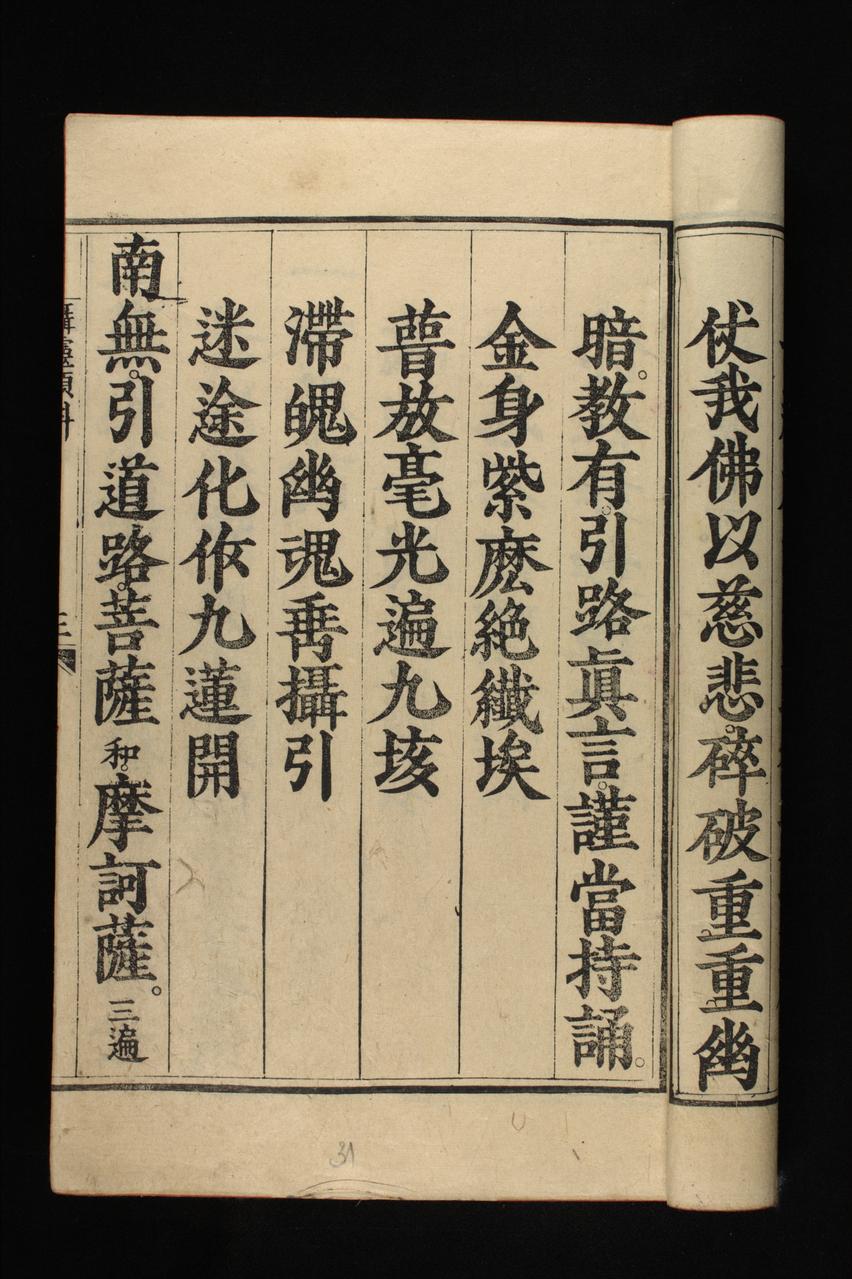 仗我佛以慈悲。碎破重重幽
暗。教有引路眞言。謹當持誦。
金身紫麽絶纖埃
普放毫光遍九垓
滯魄幽魂垂攝引
迷途化作九蓮開
南無。引道路。菩薩 和。摩訶薩。三遍
三
31